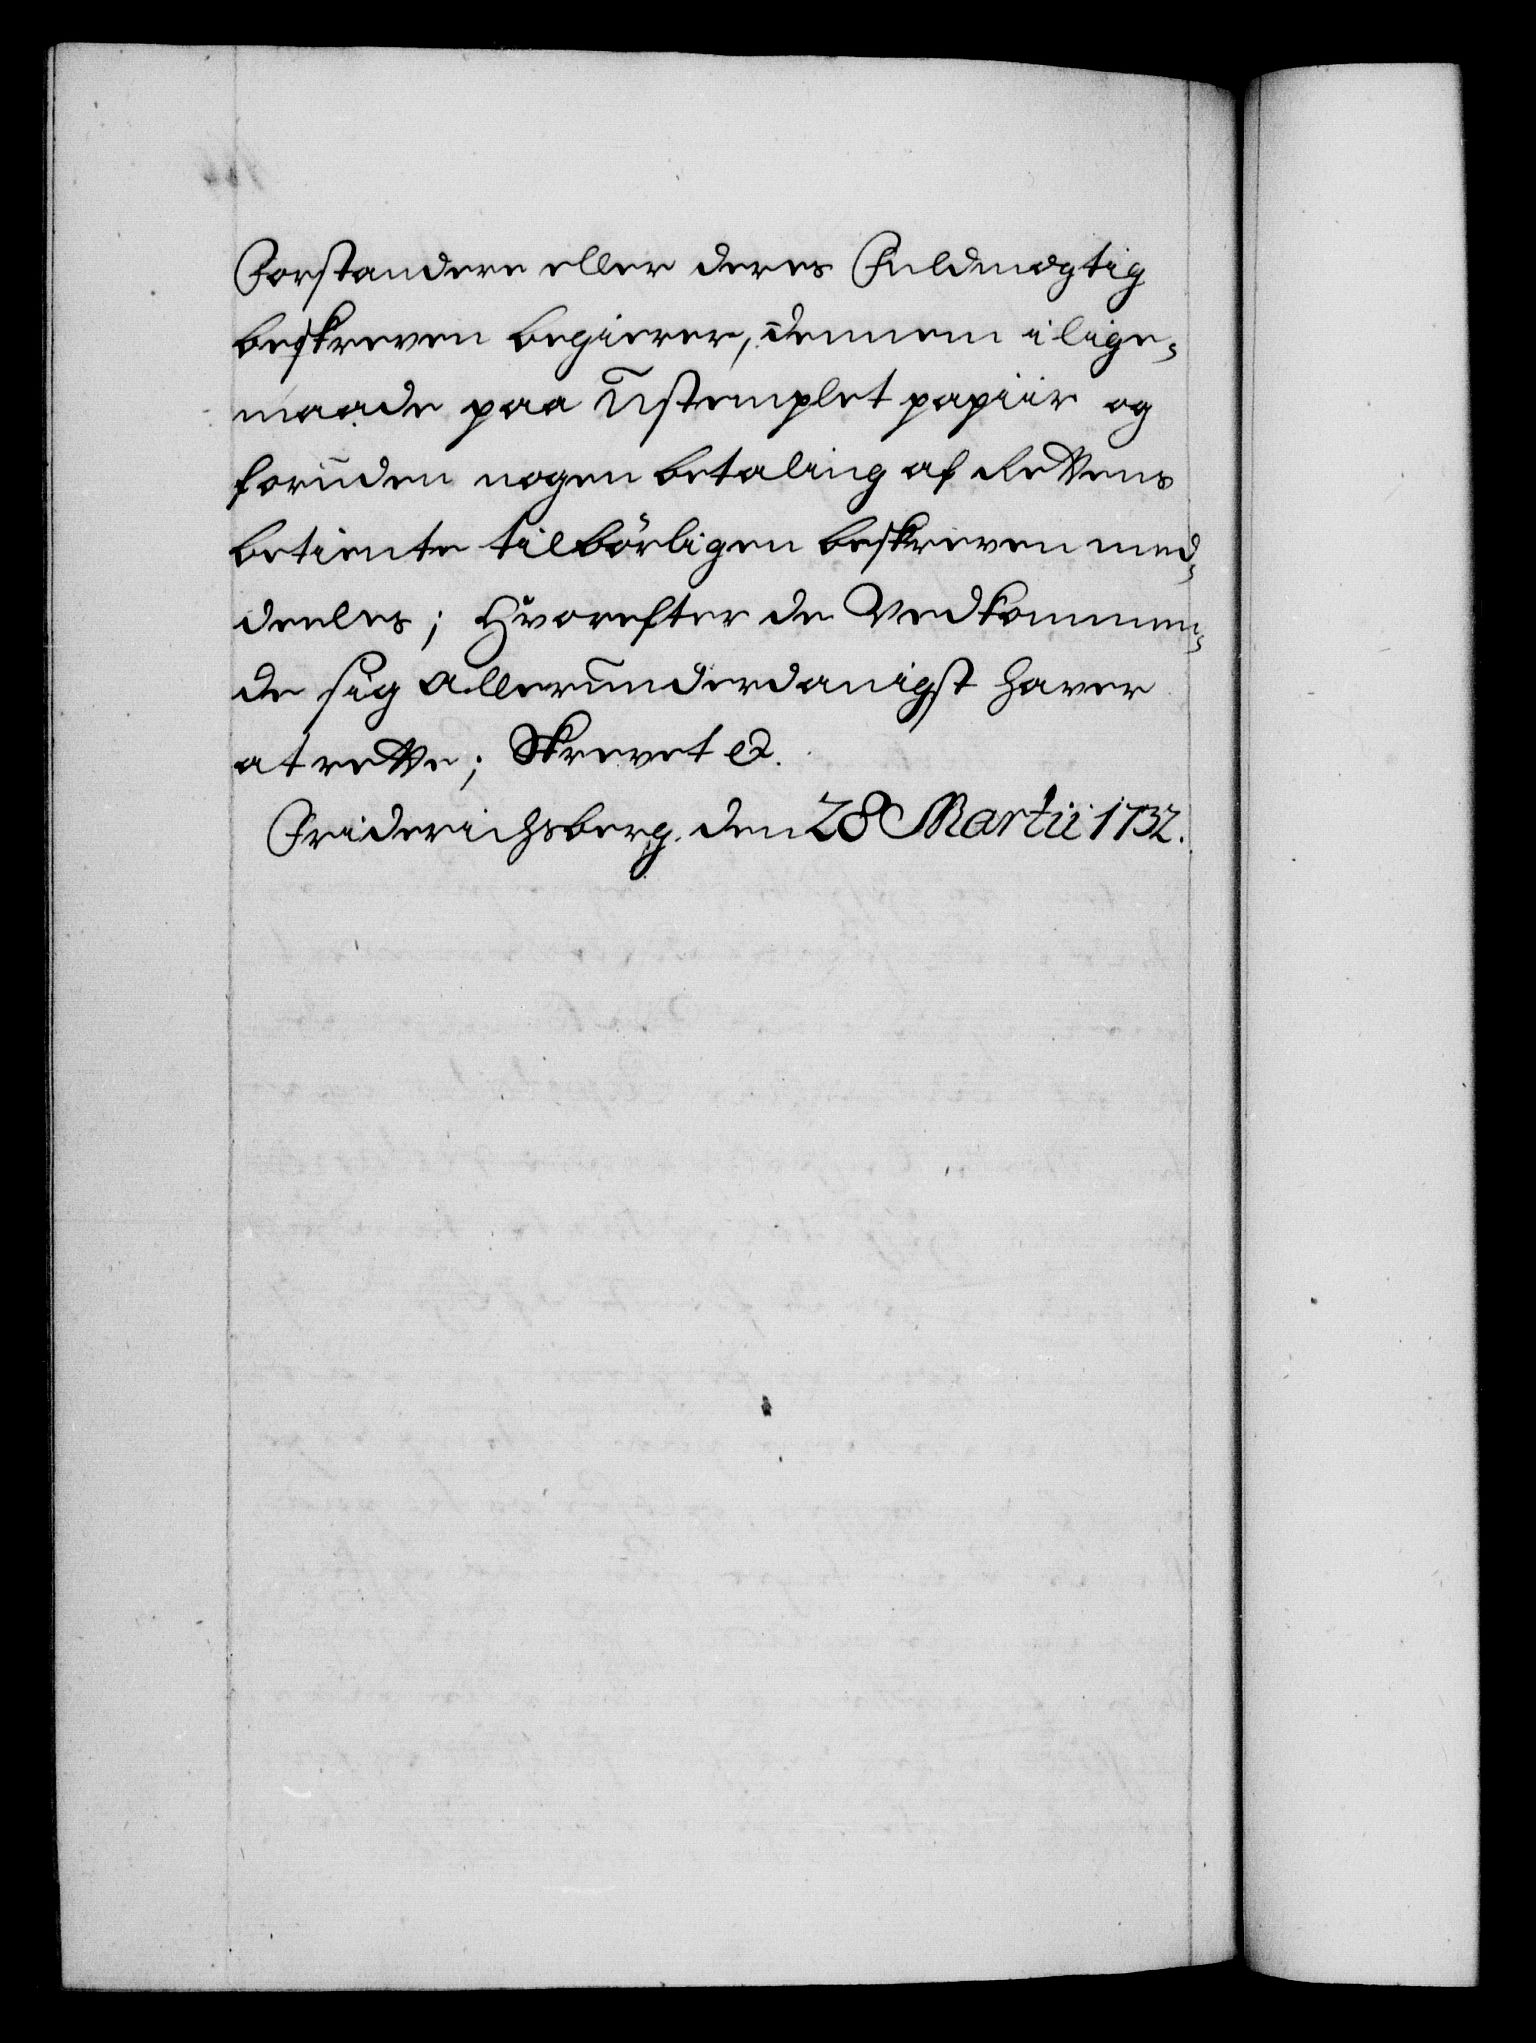 Forstandere eller deres Fuldmægtig
beskreven begierer, dennem i lige¬
maade paa Ustemplet papiir og
foruden nogen betaling af Rettens
betiente tilbörligen beskreven med¬
deeles; Hvorefter de Vedkommen¬
de sig allerunderdanigst haver
at rette; Skrevet &.
Friderichsberg den 28 Martii 1732.